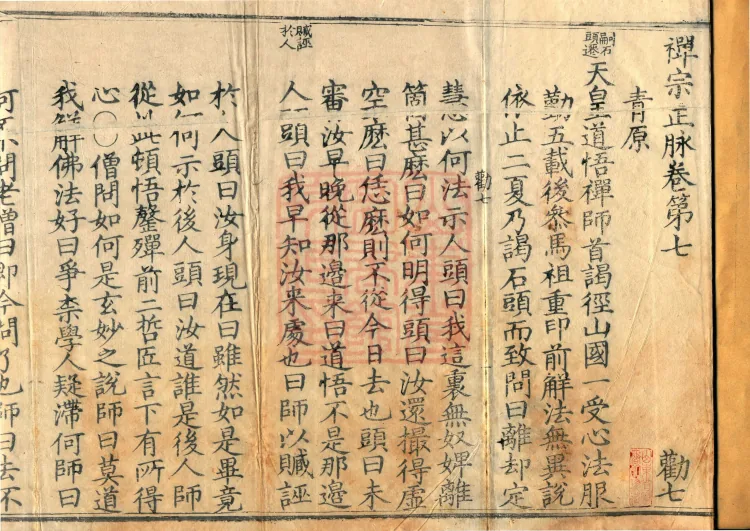 禪宗正脉卷第七
勸七
青原
嗣石
頭遷
天皇道悟禪師首謁徑山國一受心法服
勤五載後叅馬祖重印前解法無異說
依止二夏乃謁石頭而致問曰離却定
慧以何法示人頭曰我這裏無奴婢離
勸七
箇甚麽曰如何明得頭曰汝還撮得虛
空麽曰恁麽則不從今日去也頭曰未
審汝早晚從那邉来曰道悟不是那邉
贓誣
於人
人頭曰我早知汝来處也曰師以贓誣
於人頭曰汝身現在曰雖然如是畢竟
如何示於後人頭曰汝道誰是後人師
從此頓悟罄殫前二哲匠言下有所得
心〇〇僧問如何是玄妙之說師曰莫道
我解佛法好曰爭柰學人疑滯何師曰
何不問老僧曰即今問了也師曰去不